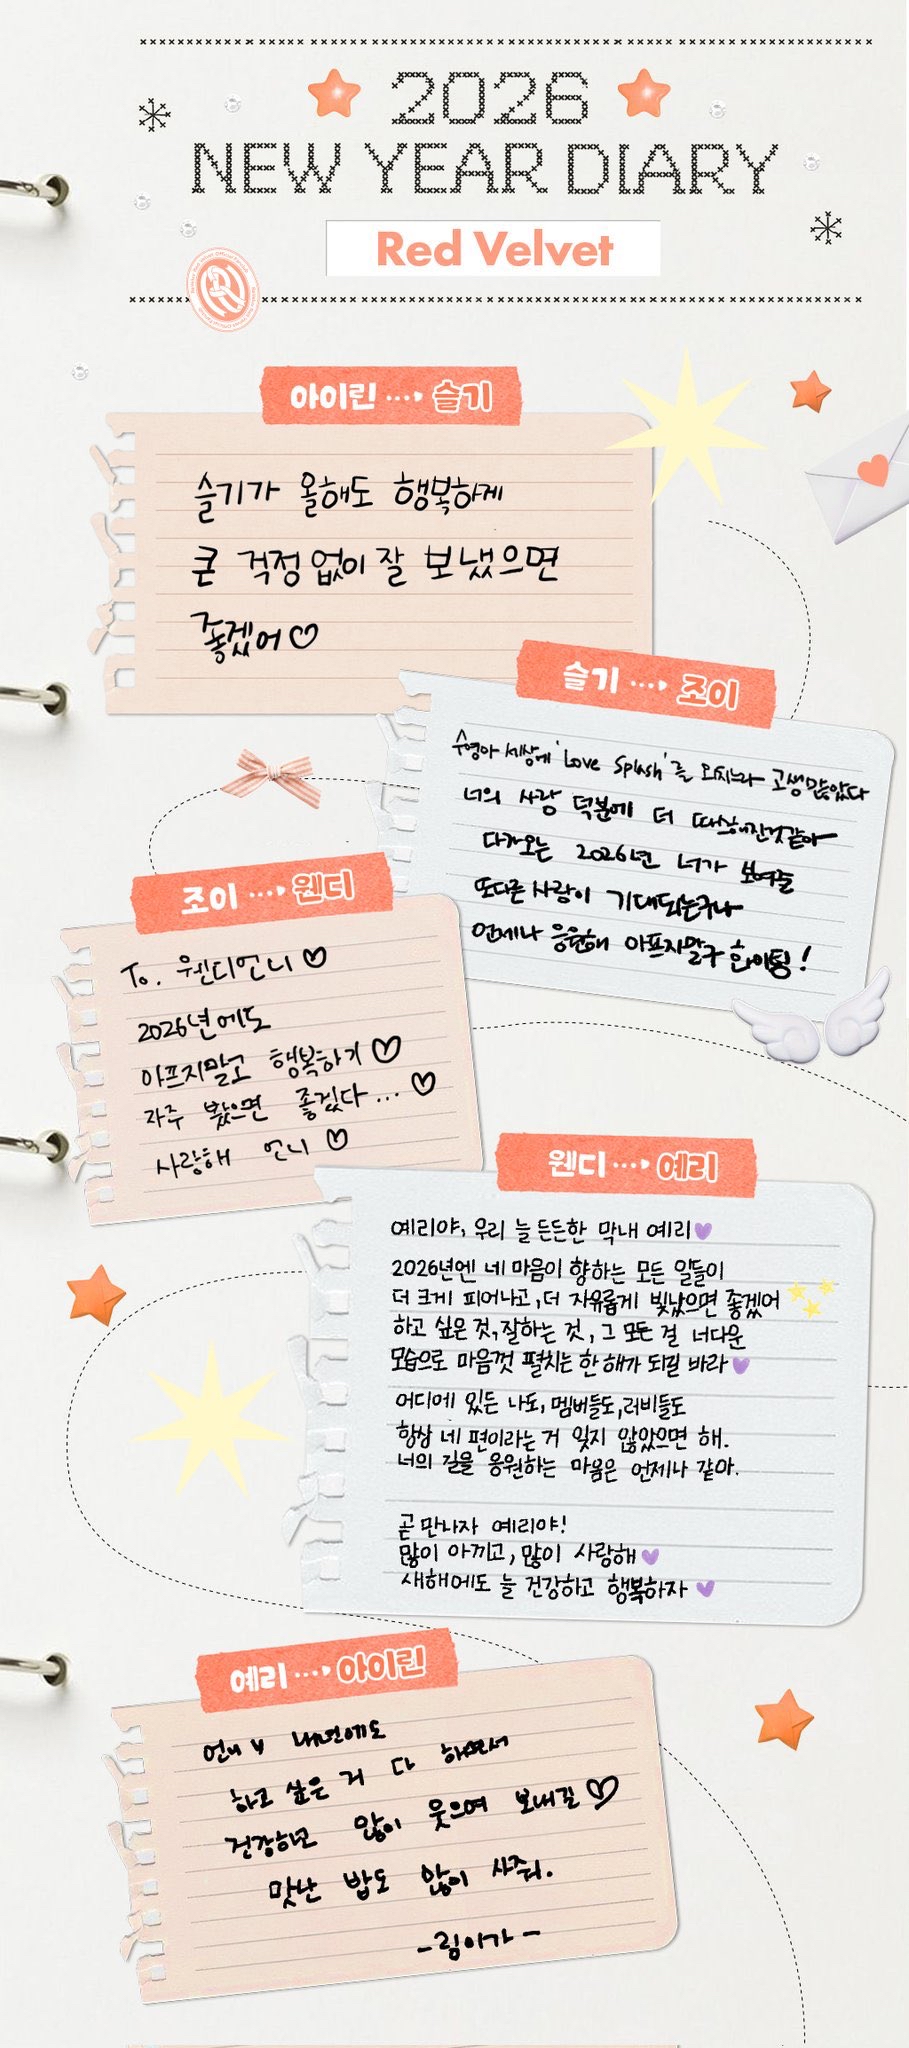 2026
NEW YEAR DIARY
Red Velvet
아이린 ····▸ 슬기
슬기가 올해도 행복하게
큰 걱정 없이 잘 보냈으면
좋겠어♡
슬기 ····▸ 조이
수영아 세상에 'Love Splash'를 외치느라 고생많았다
너의 사랑 덕분에 더 따스해진것같아
다가오는 2026년 너가 보여줄
또다른 사랑이 기대되는구나
언제나 응원해 아프지말구 화이팅!
조이 ····▸ 웬디
To. 웬디언니♡
2026년에도
아프지말고 행복하기♡
자주 봤으면 좋겠다...♡
사랑해 언니♡
웬디 ····▸ 예리
예리야, 우리 늘 든든한 막내 예리💜
2026년엔 네 마음이 향하는 모든 일들이
더 크게 피어나고, 더 자유롭게 빛났으면 좋겠어
하고 싶은 것, 잘하는 것, 그 모든 걸 너다운
모습으로 마음껏 펼치는 한 해가 되길 바라💜
어디에 있든 나도, 멤버들도, 러비들도
항상 네 편이라는 거 잊지 않았으면 해.
너의 길을 응원하는 마음은 언제나 같아.
곧 만나자 예리야!
많이 아끼고, 많이 사랑해💜
새해에도 늘 건강하고 행복하자💜
예리 ····▸ 아이린
언니♥ 내년에도
하고 싶은 거 다 하면서
건강하고 많이 웃으며 보내길♡
맛난 밥도 많이 사줘.
-림이가-